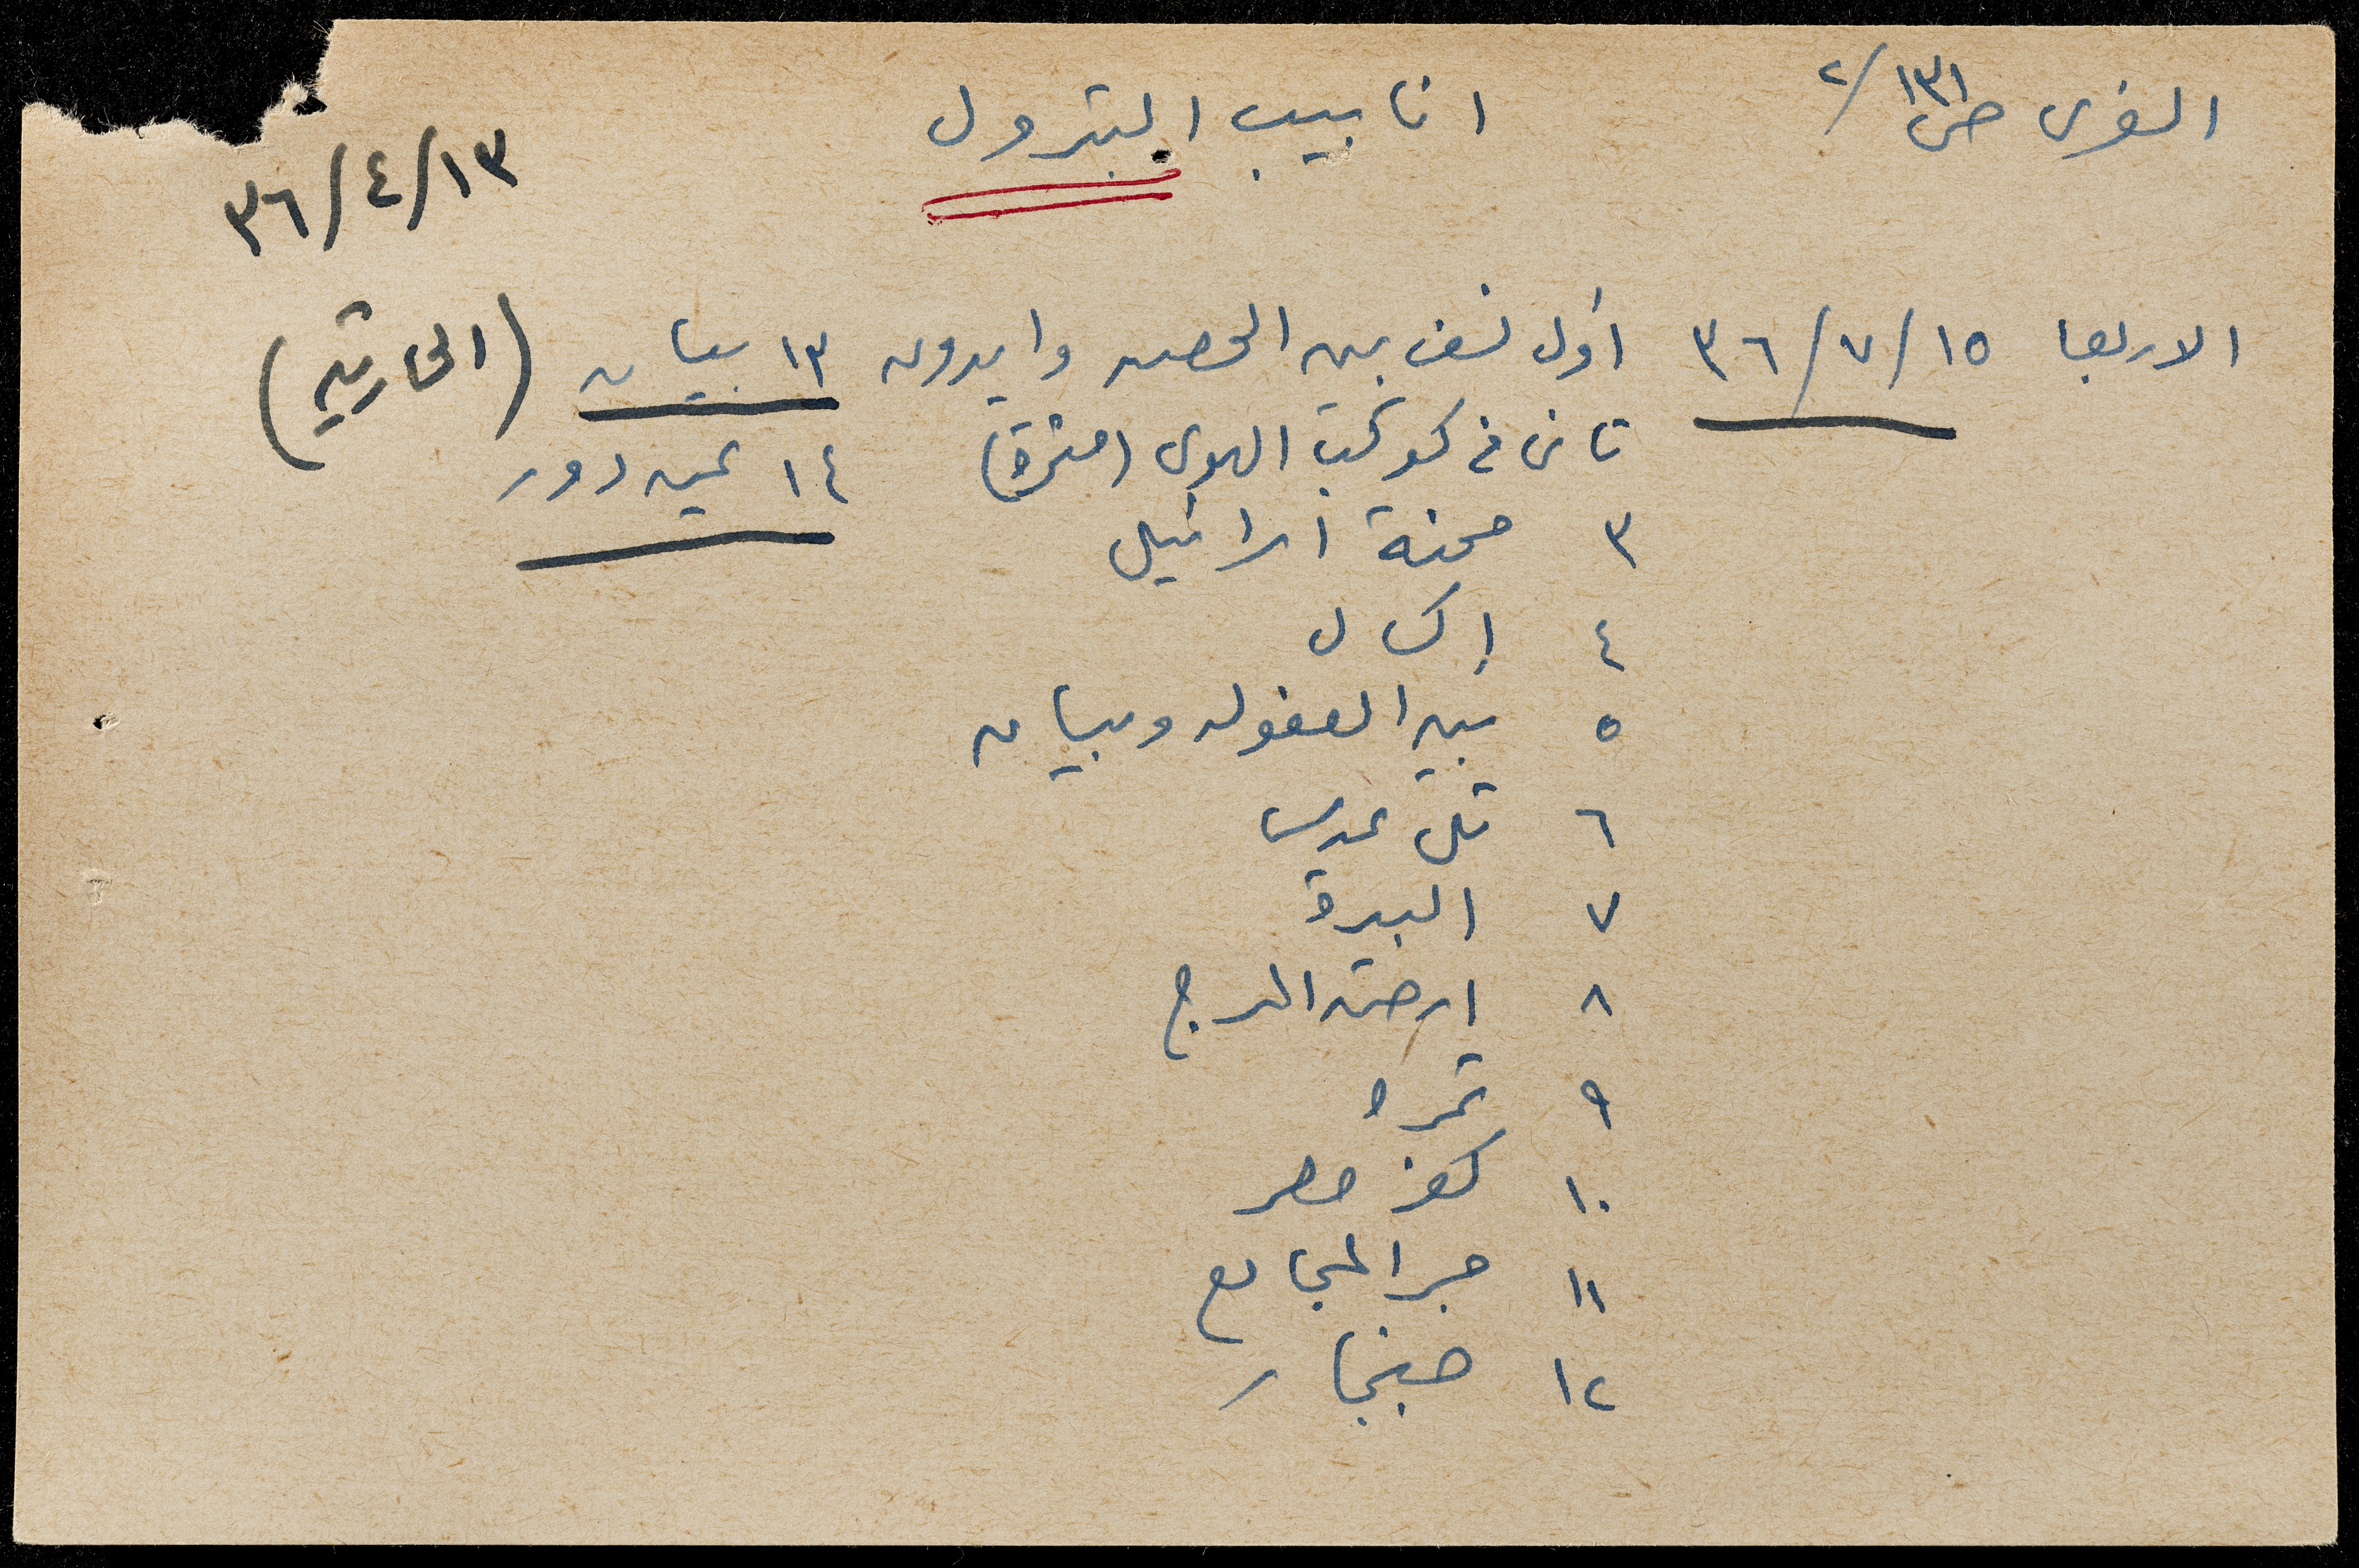 الغرى ص ١٣١ /٢
انابيب البترول
٣٦/٤/١٣
الاربعا ١٥/٧/٣٦ أول نسف بين الحصن وايدون ١٣ بيسان (الحارثيه)
ثاني في كوكب الهوى (منتزة) ١٤ عين دور
٣ محنة اسرائيل
٤ إكسال
٥ بين العفوله وبيسان
٦ تل عدس
٧ البيرة
٨ ارض المرج
٩ تمره
١٠ كفر مصر
١١ جسر المجامع
١٢ جنجار